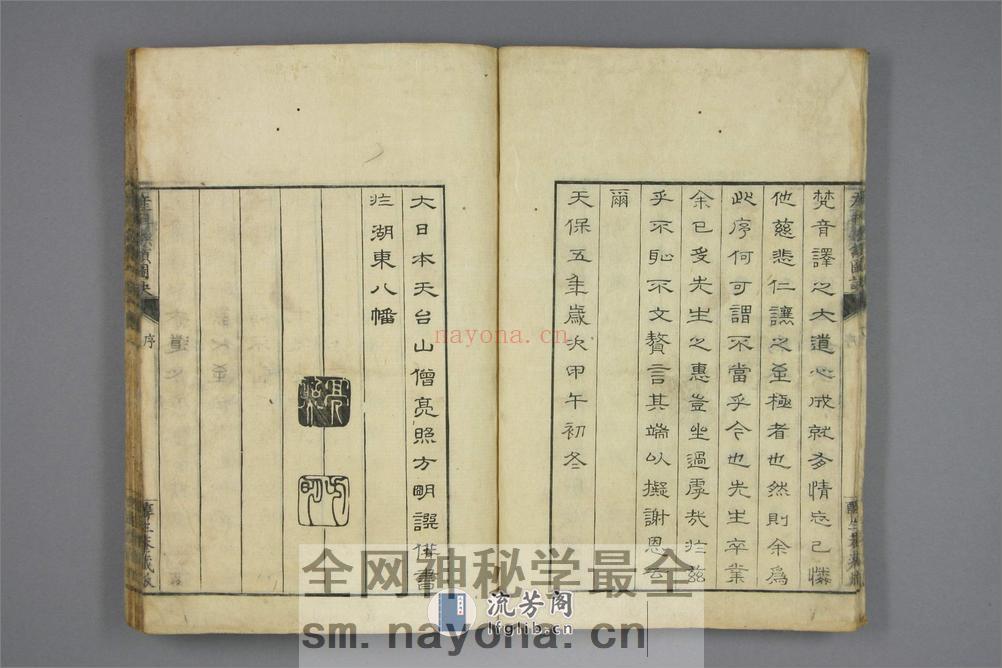 梵音譯之大道心成就多情忘己憐
他慈悲仁讓之至極者也然則余爲
此序何可謂不當乎今也先生卒業
余已受先生之惠豈坐過虖哉於茲
乎不恥不文贅言其端以擬謝恩云
爾
天保五年歲次甲午初冬
大日本天台山僧亮照方明譔併書
於湖東八幡
亮照
方明
序
序
nayona.ca
全网神秘学最全
流芳阁
lfglib.cn
sm.nayona.cn